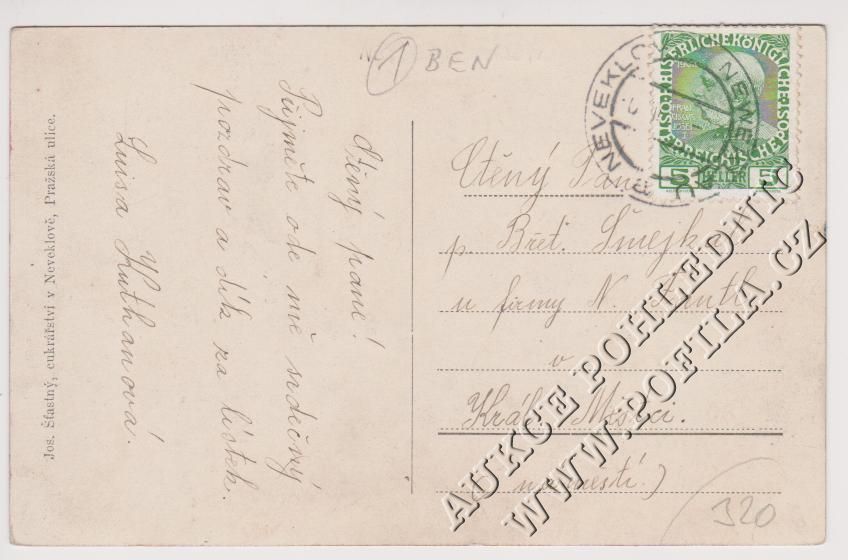 1 BEN
Ctěný pane!
Přijměte ode mě srdečný
pozdrav a dík za lístek.
Luisa Kuthanová.
Jos. Šťastný, cukrářství v Neveklově, Pražská ulice.
NEVEKLOV
KAISERLICHE KÖNIGLICHE ÖSTERREICHISCHE POST
5 HELLER 5
Ctěný Pan
p. Břet. Šmejkal
u firmy N.
v
Král. Městci.
(na městí.)
320
AUKCE POHLEDNIC
WWW.POFILA.CZ